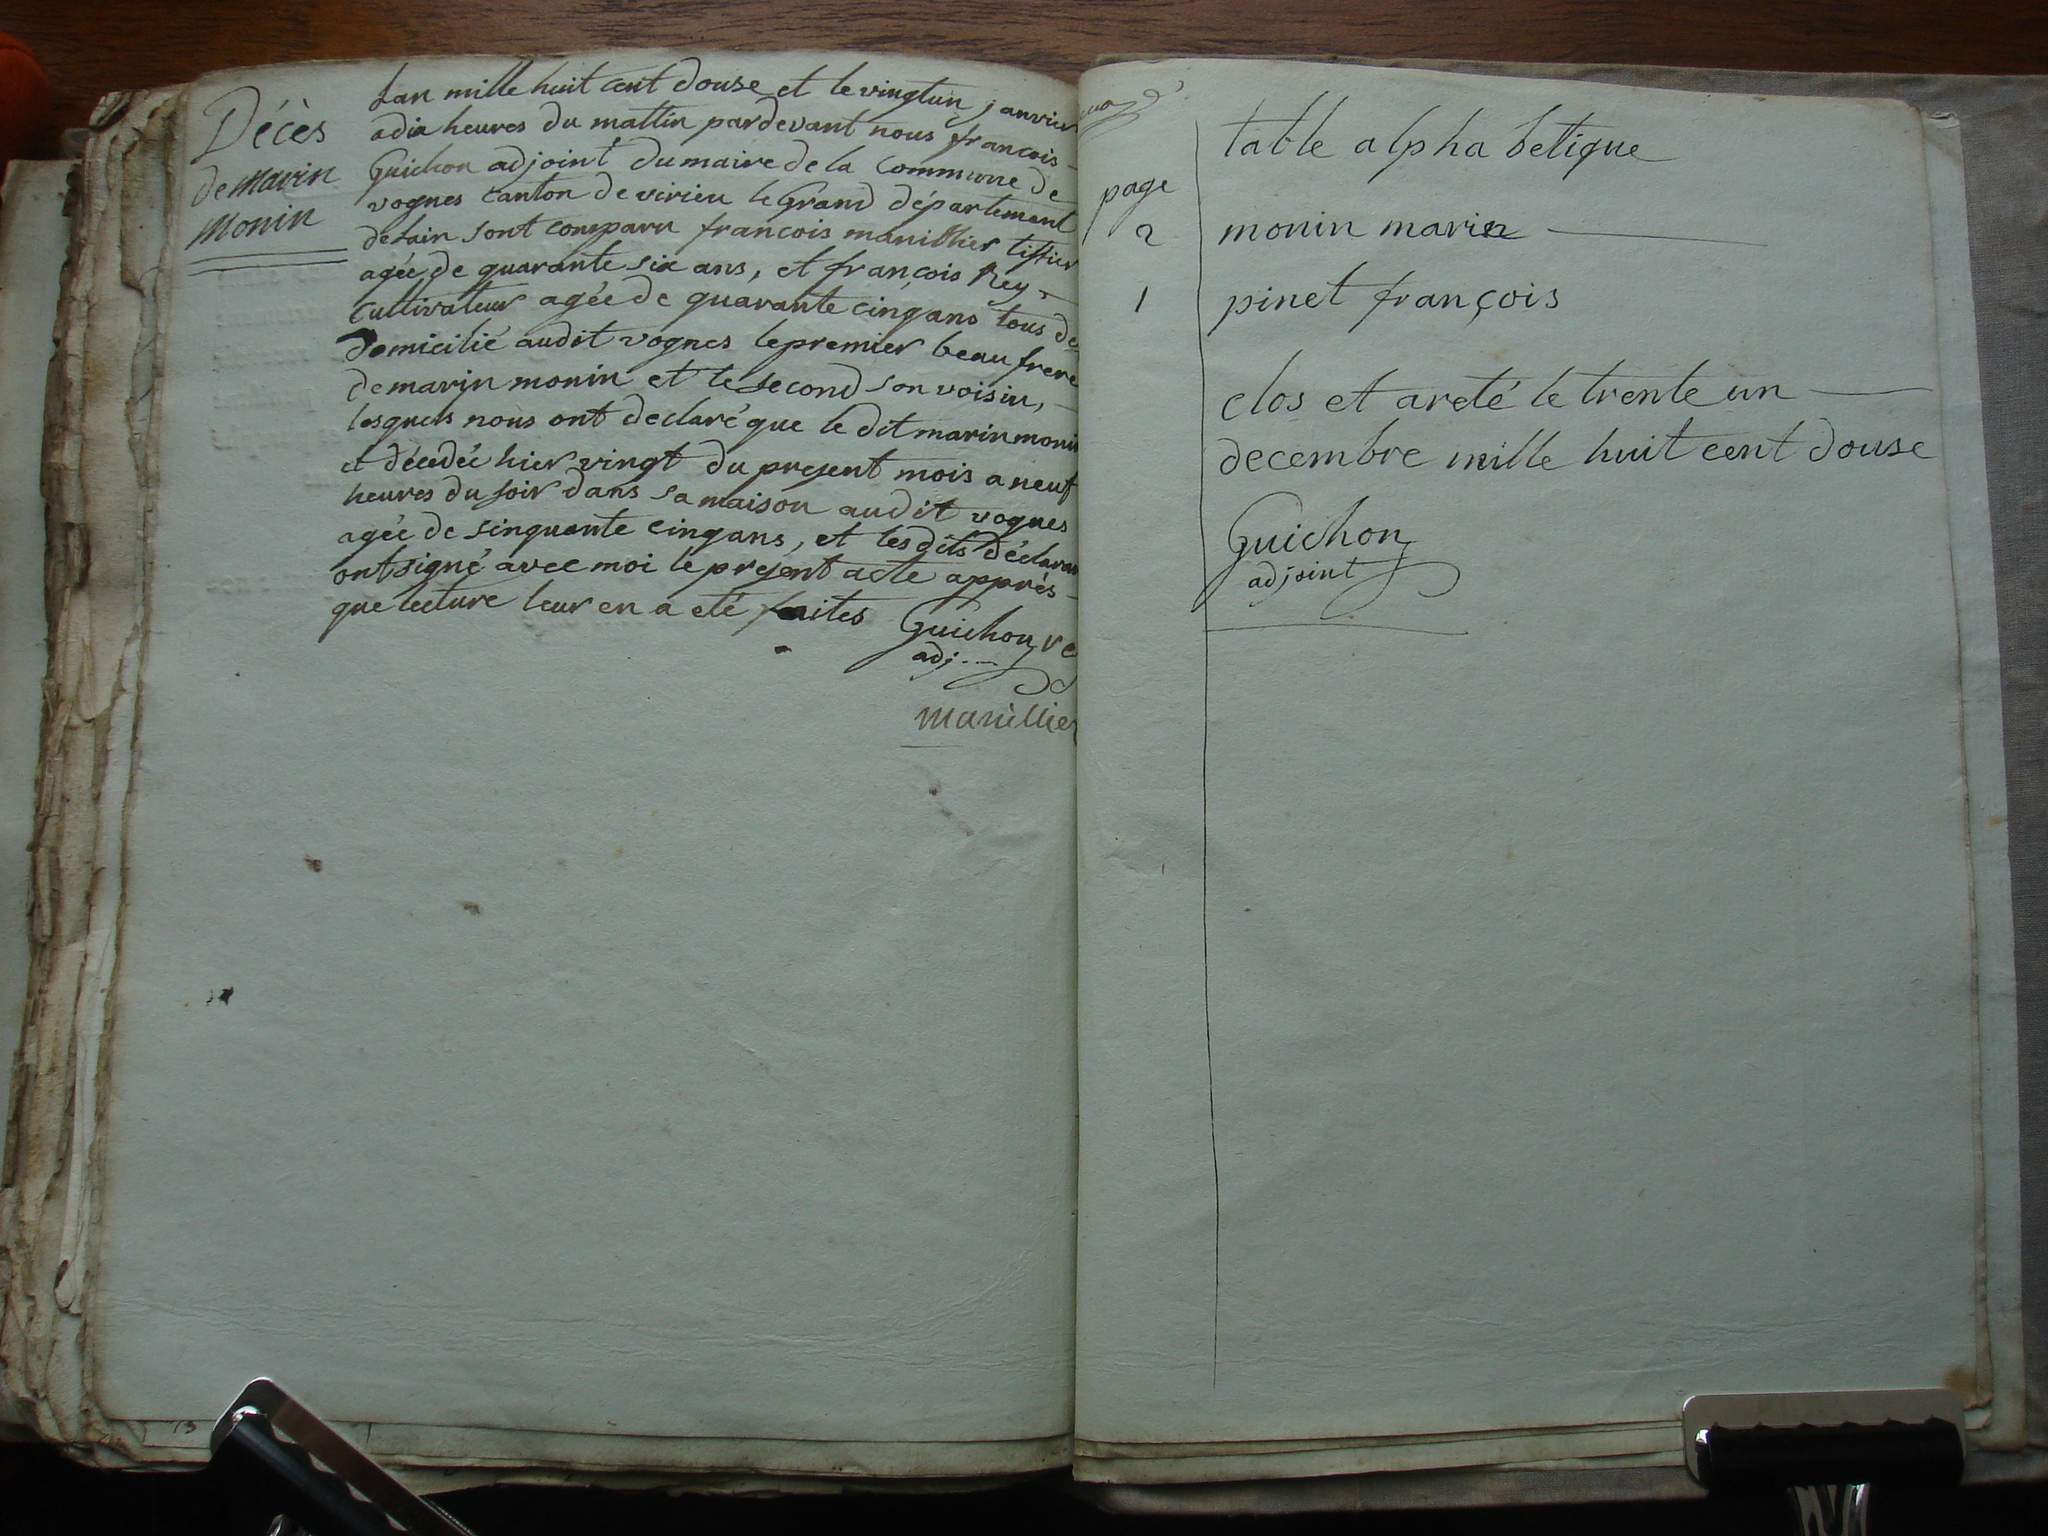 Décès
de marin
monin
Lan mille huit cent douse et le vingtun janvier
a dix heures du mattin pardevant nous francois
Guichon adjoint du maire de la commune de
vognes canton de virieu le Grand département
de Lain sont comparu francois manillier tissier
agée de quarante six ans, et françois Rey
cultivateur agée de quarante cinq ans tous de
domicilié audit vognes le premier beau frere
de marin monin et le second son voisin,
lesquels nous ont declaré que le dit marin monin
et décedée hier vingt du present mois a neuf
heures du soir dans sa maison audit vognes
agée de sinquante cinq ans, et les dits déclaran
ont signé avec moi le present acte apprès
que lecture leur en a eté faites Guichon
adj
manillier
table alpha betique
page
2 monin marin
1 pinet françois
clos et areté le trente un
decembre mille huit cent douse
Guichon
adjoint
13